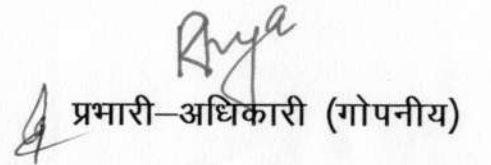 प्रभारी–अधिकारी (गोपनीय)